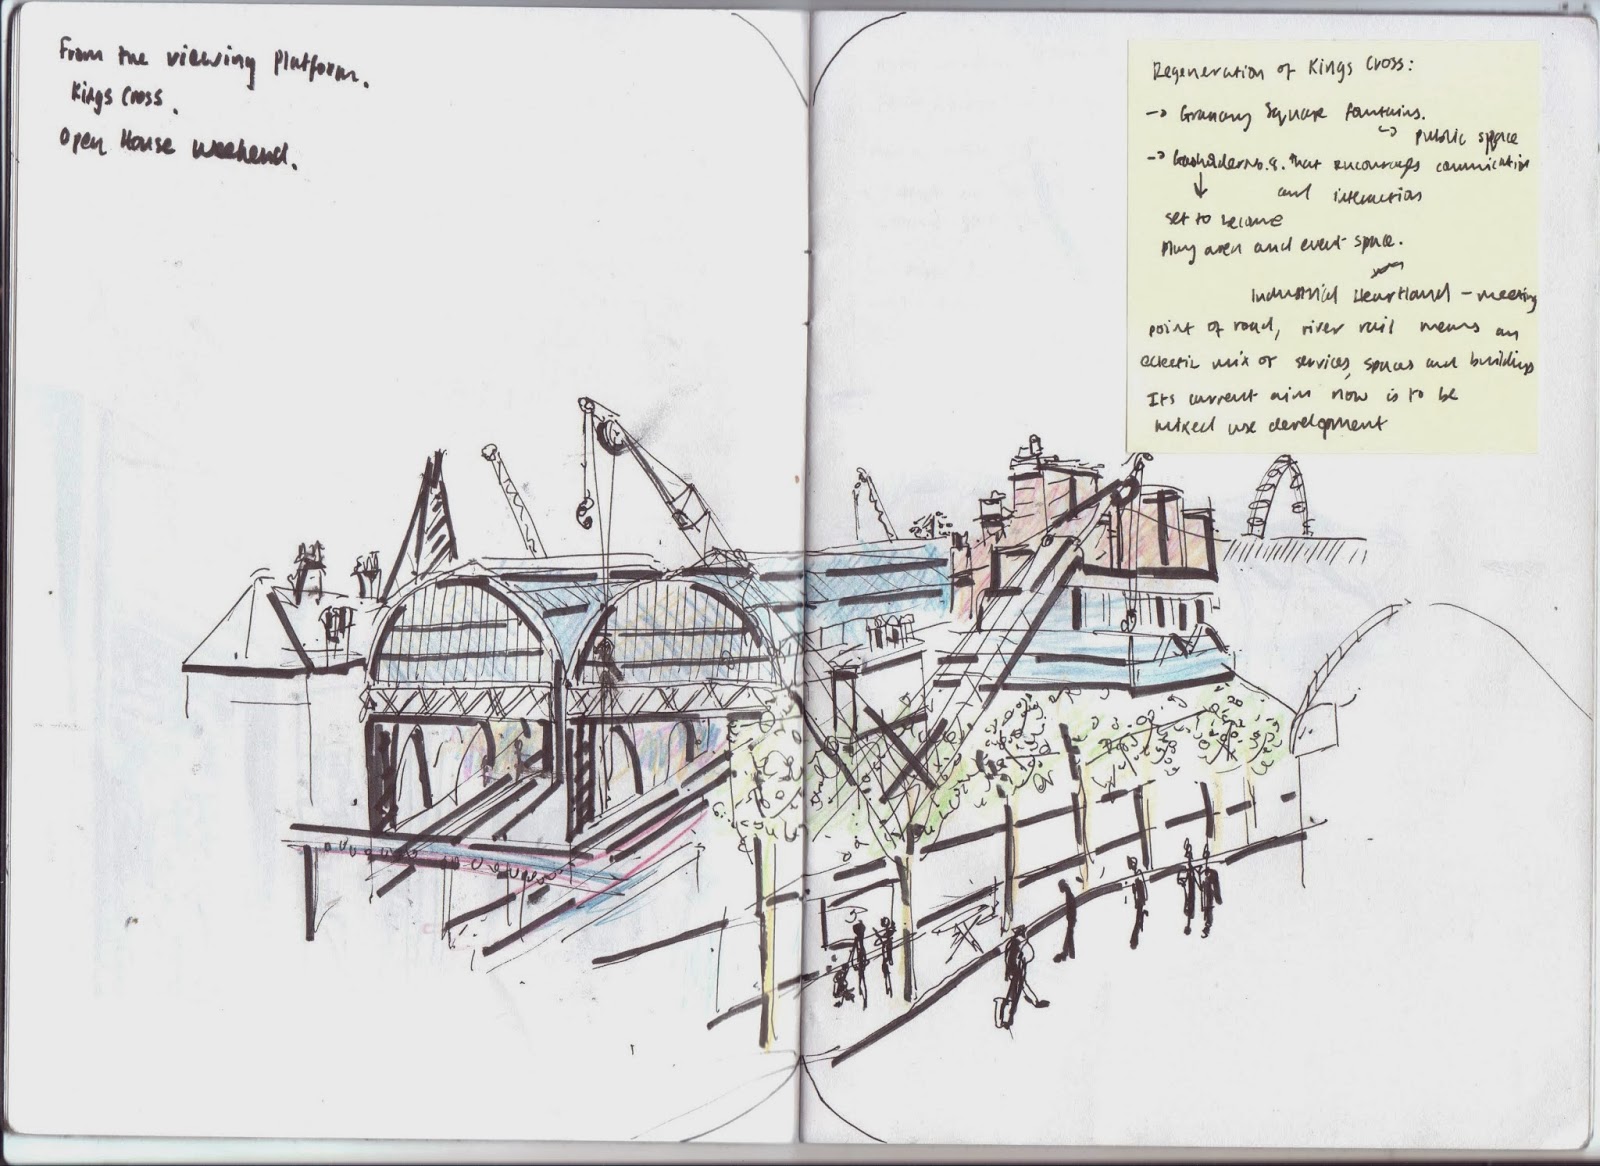 From the viewing Platform.
Kings Cross.
Open House Weekend.
Regeneration of Kings Cross:
→ Granary Square fountains.
↪ public space
→ Gasholder No. 8. that encourages communication
and interaction
↓
set to become
Play area and event space.
Industrial Heartland – meeting
point of road, river rail means an
eclectic mix of services, spaces and buildings
Its current aim now is to be
mixed use development